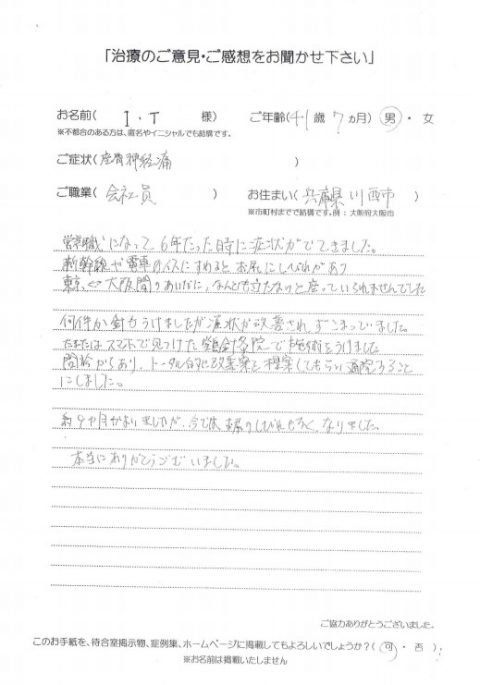 「治療のご意見・ご感想をお聞かせ下さい」
お名前( I・T 様) ご年齢(41歳7ヵ月) 男・女
※不都合のある方は、匿名やイニシャルでも結構です。
ご症状(座骨神経痛)
ご職業(会社員) お住まい(兵庫県川西市)
※市町村までで結構です。例:大阪府大阪市
営業職になって6年たった時に症状がでてきました。
新幹線や電車のイスにすわるとお尻にしびれがあり
東京⇔大阪間のあいだに、なんども立たないと座っていられませんでした
何件か針もうけましたが症状が改善されずこまっていました。
たまたまスマホで見つけた鍼灸院で施術をうけました
問診からあり、トータル的に改善案を提案してもらい通院すること
にしました。
約4ヶ月かよいましたが、今では のしびれもなくなりました。
本当にありがとうございました。
ご協力ありがとうございました。
このお手紙を、待合室掲示物、症例集、ホームページに掲載してもよろしいでしょうか?(可・否)
※お名前は掲載いたしません